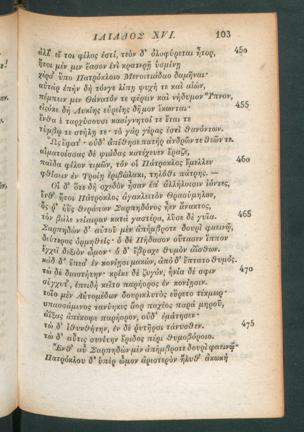 ΙΛΙΑΔΟΣ XVI. 103
ἀλλ' εἴ τοι φίλος ἐστὶ, τεὸν δ' ὀλοφύρεται ἦτορ, 450
ἤτοι μέν μιν ἔασον ἐνὶ κρατερῇ ὑσμίνῃ
χέρσ' ὕπο Πατρόκλοιο Μενοιτιάδαο δαμῆναι·
αὐτὰρ ἐπὴν δὴ τόνγε λίπῃ ψυχή τε καὶ αἰὼν,
πέμπειν μιν Θάνατόν τε φέρειν καὶ νήδυμον Ὕπνον,
εἰσόκε δὴ Λυκίης εὐρείης δῆμον ἵκωνται· 455
ἔνθα ἑ ταρχύσουσι κασίγνητοί τε ἔται τε
τύμβῳ τε στήλῃ τε· τὸ γὰρ γέρας ἐστὶ θανόντων.
Ὣς ἔφατ'· οὐδ' ἀπίθησε πατὴρ ἀνδρῶν τε θεῶν τε.
αἱματοέσσας δὲ ψιάδας κατέχευεν ἔραζε,
παῖδα φίλον τιμῶν, τόν οἱ Πάτροκλος ἔμελλεν 460
φθίσειν ἐν Τροίῃ ἐριβώλακι, τηλόθι πάτρης. —
Οἱ δ' ὅτε δὴ σχεδὸν ἦσαν ἐπ' ἀλλήλοισιν ἰόντες,
ἔνθ' ἤτοι Πάτροκλος ἀγακλειτὸν Θρασύμηλον,
ὅς ῥ' ἠῢς θεράπων Σαρπηδόνος ἦεν ἄνακτος,
τὸν βάλε νείαιραν κατὰ γαστέρα, λῦσε δὲ γυῖα. 465
Σαρπηδὼν δ' αὐτοῦ μὲν ἀπήμβροτε δουρὶ φαεινῷ,
δεύτερος ὁρμηθείς· ὁ δὲ Πήδασον οὔτασεν ἵππον
ἔγχεϊ δεξιὸν ὦμον· ὁ δ' ἔβραχε θυμὸν ἀΐσθων.
κὰδ δ' ἔπεσ' ἐν κονίῃσι μακὼν, ἀπὸ δ' ἔπτατο θυμός.
τὼ δὲ διαστήτην· κρίκε δὲ ζυγὸν, ἡνία δέ σφιν 470
σύγχυτ', ἐπειδὴ κεῖτο παρήορος ἐν κονίῃσιν.
τοῖο μὲν Αὐτομέδων δουρικλυτὸς εὕρετο τέκμωρ·
σπασσάμενος τανύηκες ἄορ παχέος παρὰ μηροῦ,
ἀΐξας ἀπέκοψε παρήορον, οὐδ' ἐμάτησεν·
τὼ δ' ἰθυνθήτην, ἐν δὲ ῥυτῆρσι τάνυσθεν. 475
τὼ δ' αὖτις συνίτην ἔριδος πέρι θυμοβόροιο.
Ἔνθ' αὖ Σαρπηδὼν μὲν ἀπήμβροτε δουρὶ φαεινῷ·
Πατρόκλου δ' ὑπὲρ ὦμον ἀριστερὸν ἤλυθ' ἀκωκὴ